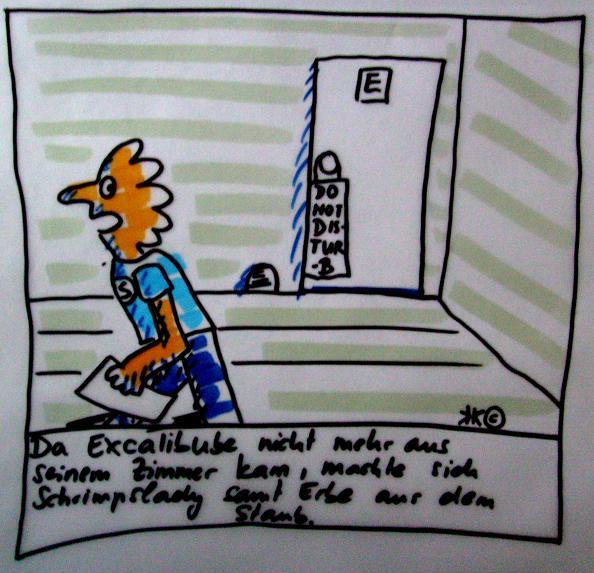 E
DO
NOT
DIS-
TUR
-B
S
E
KK©
Da Excalibube nicht mehr aus
seinem Zimmer kam, machte sich
Schrimpslady samt Erbe aus dem
Staub.